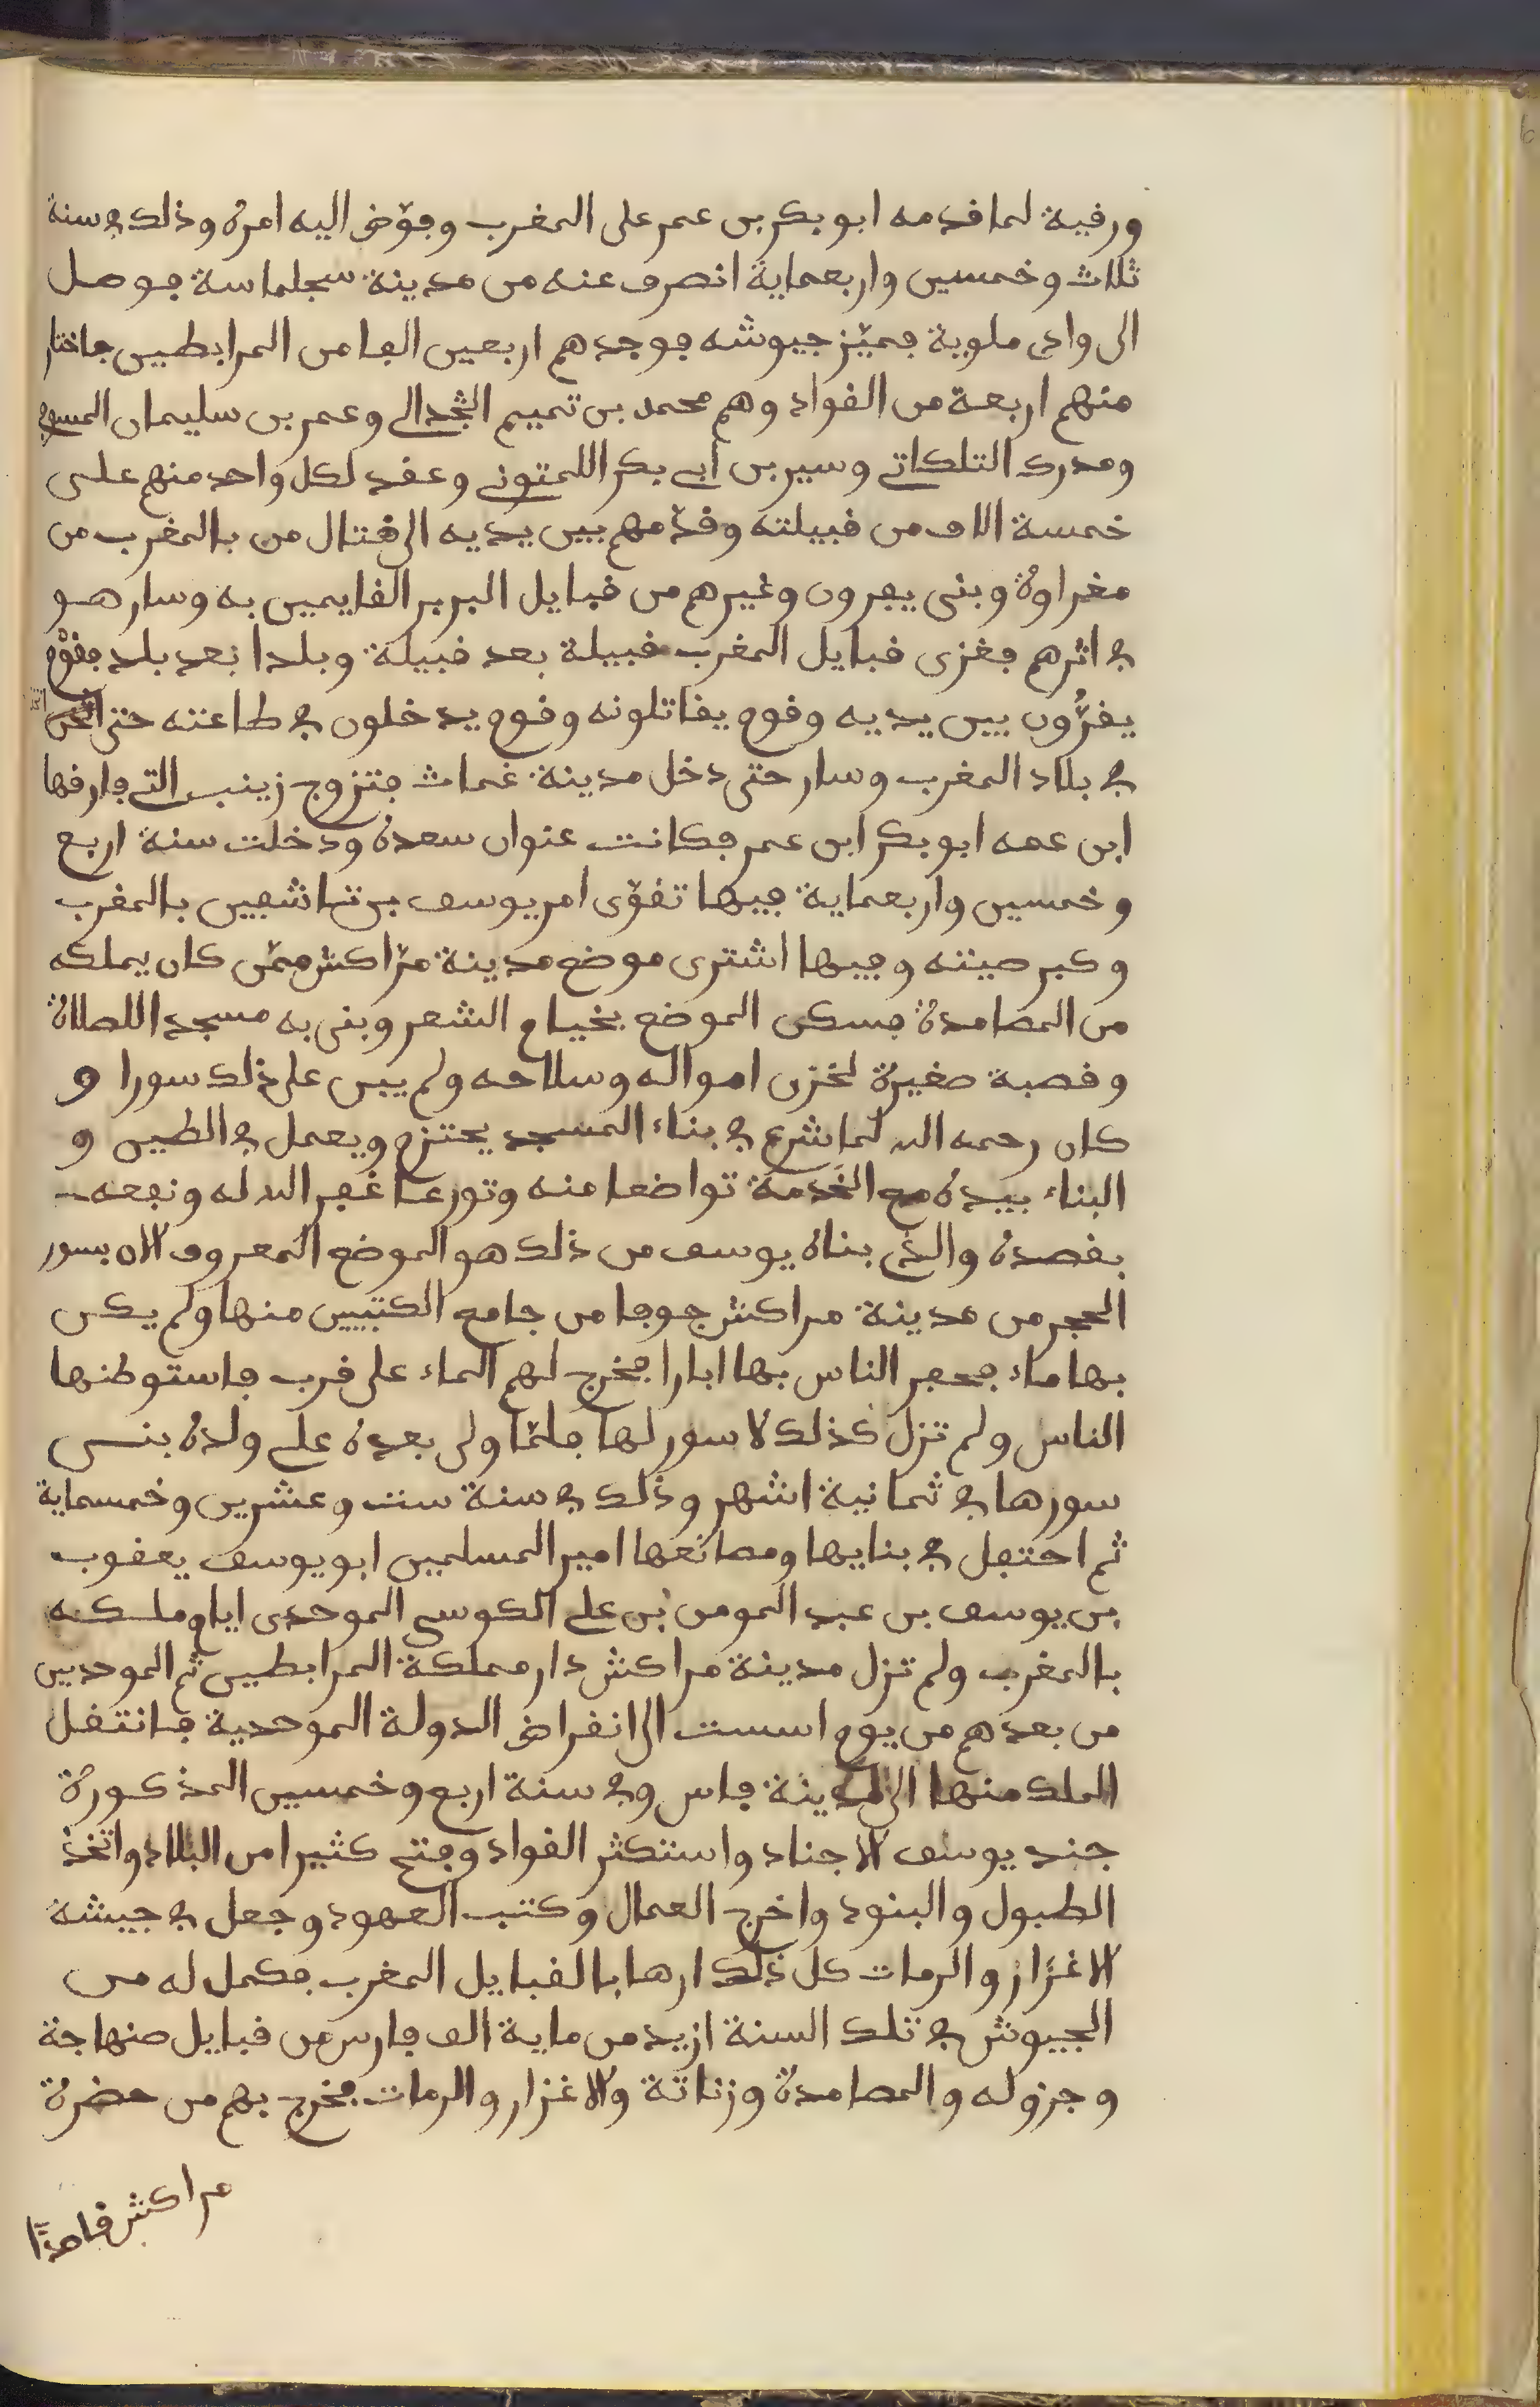 ورقية لما قدمه ابو بكر بن عمر على المغرب وفوّض اليه امره وذلك في سنة
ثلاث وخمسين واربعماية انصرف عنه من مدينة سجلماسة فوصل
الى وادى ملوية فميّز جيوشه فوجدهم اربعين الفا من المرابطين فاختار
منهم اربعة من القواد وهم محمد بن تميم الجدالي وعمر بن سليمان المسوفي
ومدرك التلكاتي وسير بن ابي بكر اللمتوني وعقد لكل واحد منهم على
خمسة الاف من قبيلته وقدّمهم بين يديه الى قتال من بالمغرب من
مغراوة وبنى يفرون وغيرهم من قبايل البربر القايمين به وسار هو
في اثرهم فغزى قبايل المغرب قبيلة بعد قبيلة وبلدا بعد بلد فقوم
يفرّون بين يديه وقوم يقاتلونه وقوم يدخلون في طاعته حتى اثخن
في بلاد المغرب وسار حتى دخل مدينة غمات فتزوج زينب التي فارقها
ابن عمه ابو بكر ابن عمر فكانت عنوان سعده ودخلت سنة اربع
وخمسين واربعماية فيها تقوّى امر يوسف بن تاشفين بالمغرب
وكبر صيته وفيها اشترى موضع مدينة مرّاكش ممّن كان يملكه
من المصامدة فسكن الموضع بخيام الشعر وبنى به مسجد اللصلاة
وقصبة صغيرة لخزن امواله وسلاحه ولم يبن على ذلك سورا و
كان رحمه الله لما شرع في بناء المسجد يحتزم ويعمل في الطين و
البناء بيده مع الخدمة تواضعا منه وتورعا غفر الله له ونفعه
بقصده والذى بناه يوسف من ذلك هو الموضع المعروف الان بسور
الحجر من مدينة مراكش جوفا من جامع الكتبيين منها ولم يكن
بها ماء فحفر الناس بها ابارا فخرج لهم الماء على قرب فاستوطنها
الناس ولم تزل كذلك لا سور لها فلمّا ولى بعده علي ولده بنى
سورها في ثمانية اشهر وذلك في سنة ست وعشرين وخمسماية
ثم احتفل في بنايها ومصانعها امير المسلمين ابو يوسف يعقوب
بن يوسف بن عبد المومن بن علي الكوسي الموحدى ايام ملكه
بالمغرب ولم تزل مدينة مراكش دار مملكة المرابطين ثم الموحدين
من بعدهم من يوم اسست الى انقراض الدولة الموحدية فانتقل
الملك منها الى مدينة فاس وفي سنة اربع وخمسين المذكورة
جند يوسف الاجناد واستكثر القواد وفتح كثيرا من البلاد واتخذ
الطبول والبنود واخرج العمال وكتب العهود وجعل في جيشه
الاغزاز والرمات كل ذلك ارهابا لقبايل المغرب فكمل له من
الجيوش في تلك السنة ازيد من ماية الف فارس من قبايل صنهاجة
وجزوله والمصامدة وزناتة والاغزار والرمات فخرج بهم من حضرة
مراكش قاصدًا